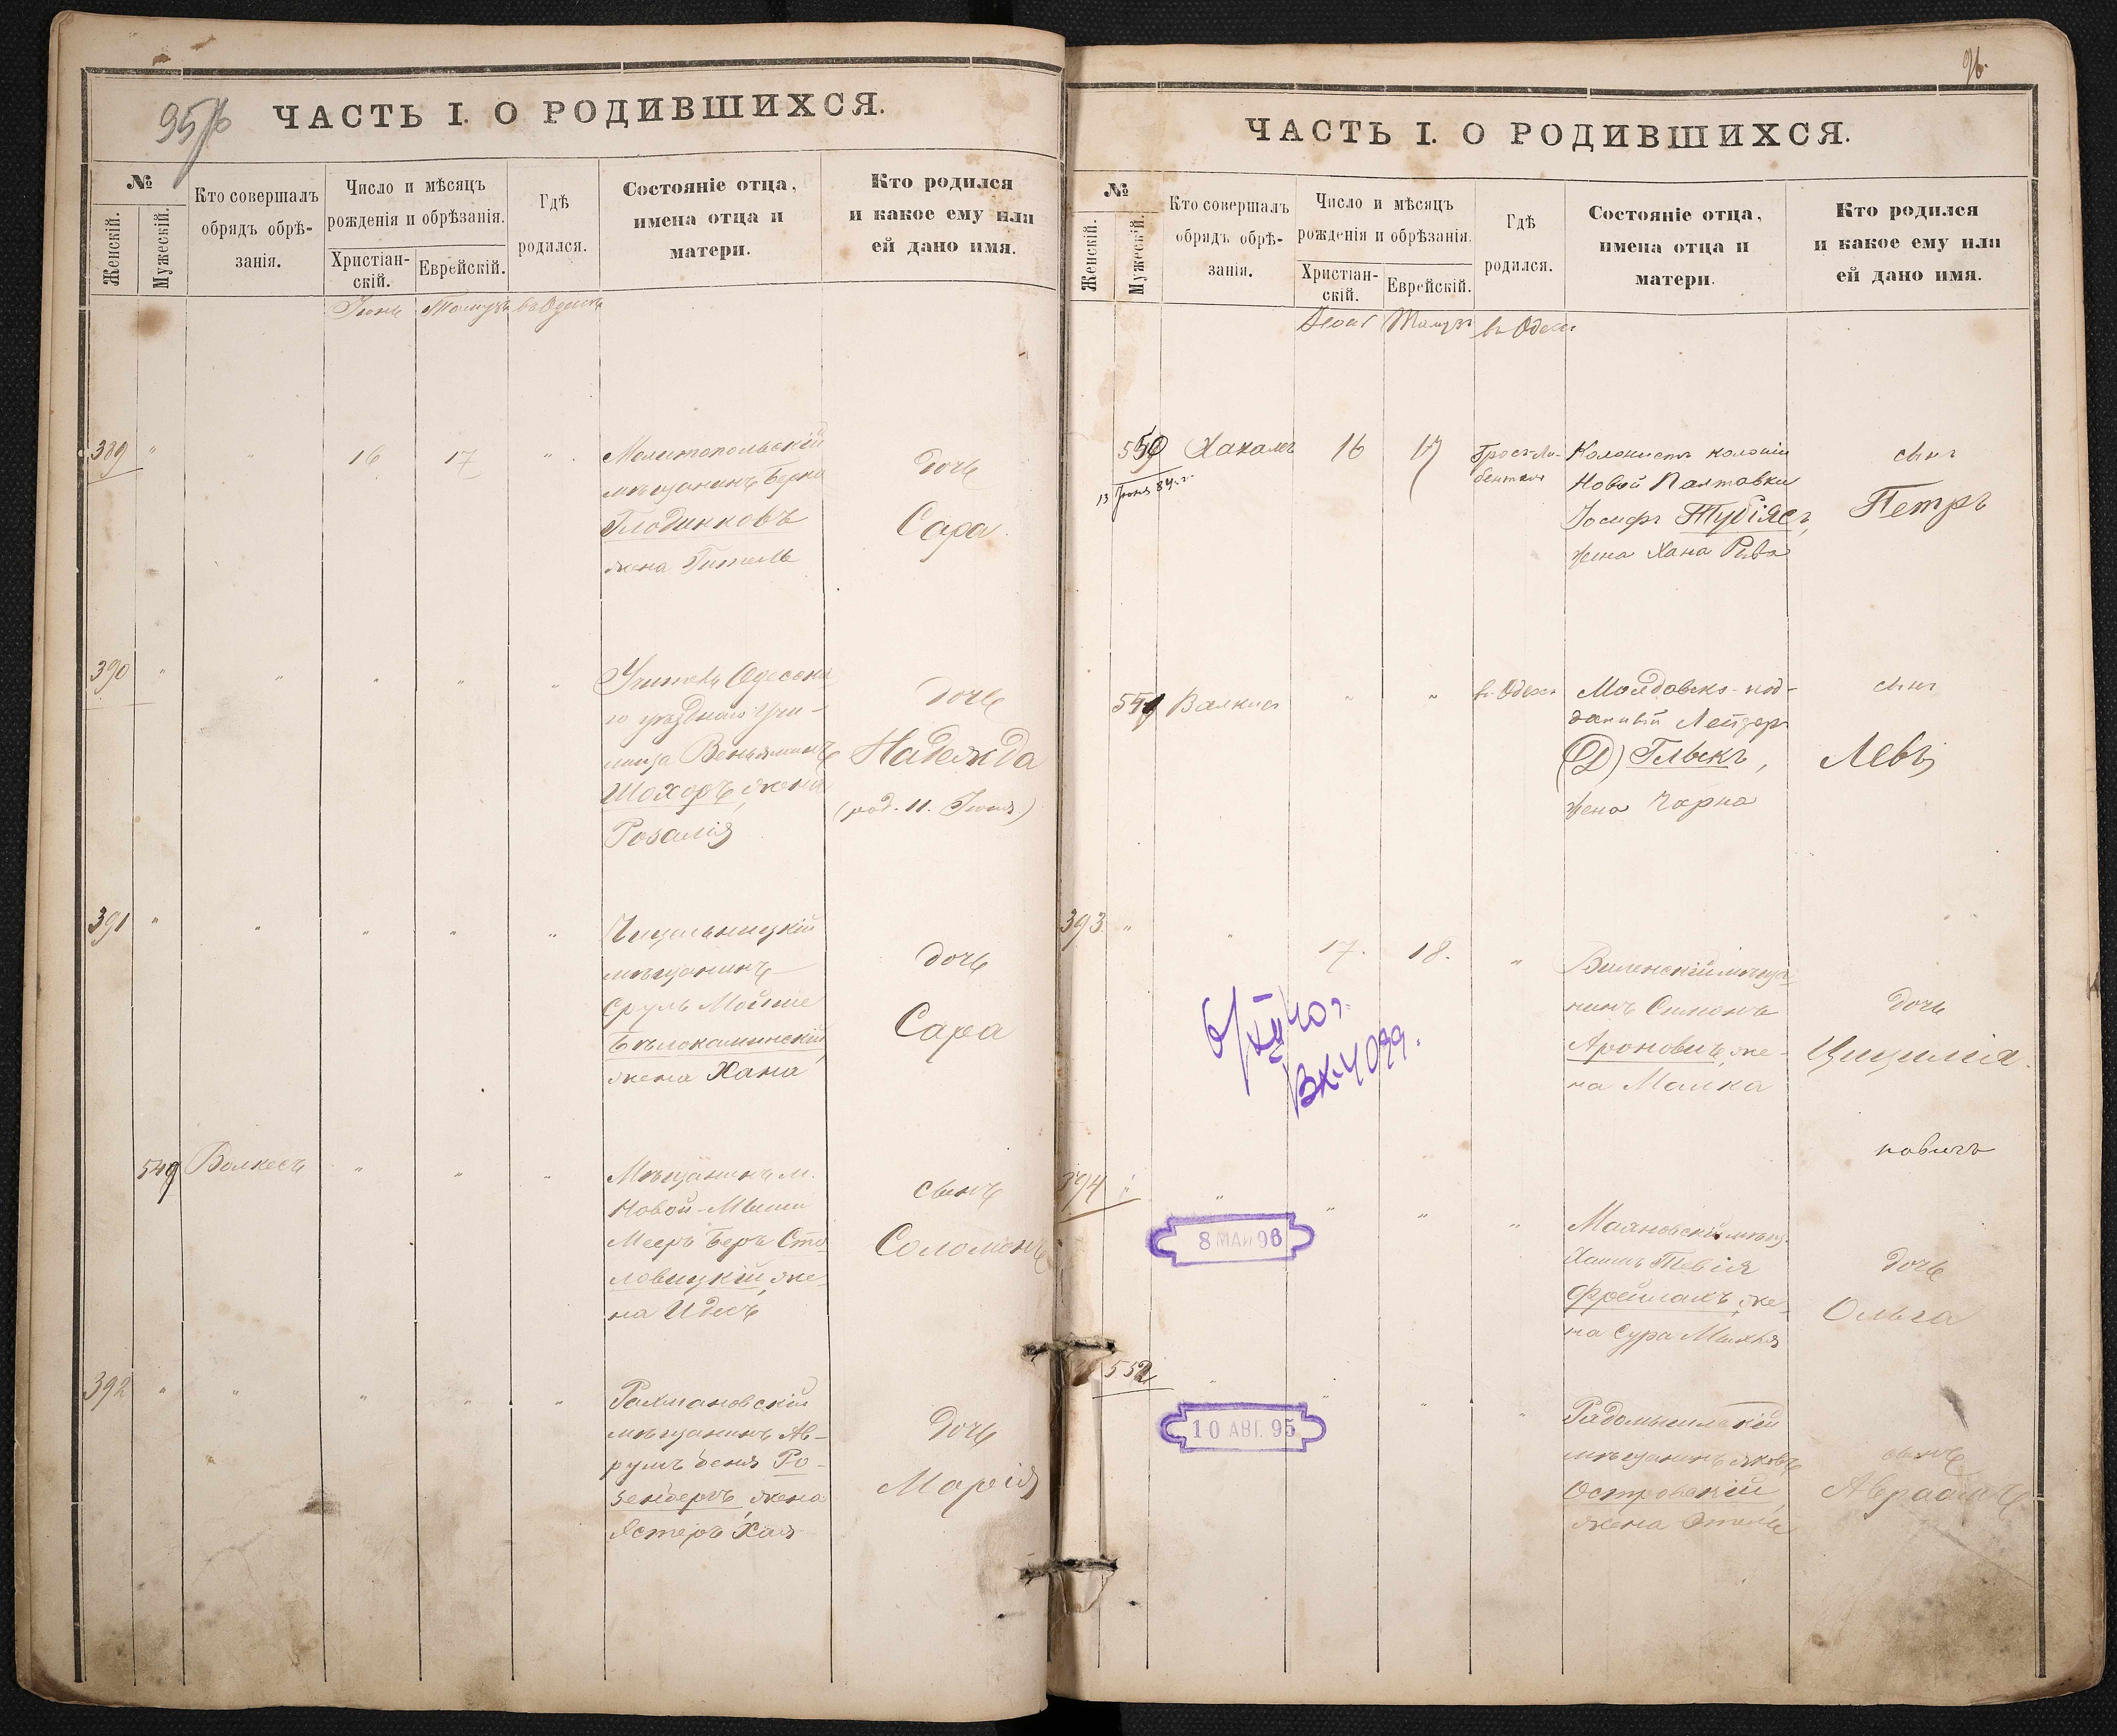 95
ЧАСТЬ I. О РОДИВШИХСЯ.
№
Женскій.
Мужескій.
Кто совершалъ
обрядъ обрѣ-
занія.
Число и мѣсяцъ
рожденія и обрѣзанія.
Христіан-
скій.
Еврейскій.
Гдѣ
родился.
Состояніе отца,
имена отца и
матери.
Кто родился
и какое ему или
ей дано имя.
Іюнь Тамузъ въ Одессѣ
389 " " 16 17 "
Мелитопольскій
мѣщанинъ Берко
Глодинковъ
жена Гитель
дочь
Сара
390 " " " " "
Учитель Одесска
го уѣзднаго Учи-
лища Веньяминъ
Шохоръ, жена
Розалія
дочь
Надежда
(род. 11. Іюня)
391 " " " " "
мѣщанинъ
Сруль Мойше
Бѣлокаминскій,
жена Хана
дочь
Сара
549 Волкесъ " " "
Мѣщанинъ м.
Новой-Мыши
Мееръ Беръ Сто
ловицкій, же-
на Идесъ
сынъ
Соломонъ
392 " " " " "
Рахмановскій
мѣщанинъ Ав-
румъ Беня Ро-
зенберъ, жена
Эстеръ Хая
дочь
Марія
96.
ЧАСТЬ I. О РОДИВШИХСЯ.
№
Женскій.
Мужескій.
Кто совершалъ
обрядъ обрѣ-
занія.
Число и мѣсяцъ
рожденія и обрѣзанія.
Христіан-
скій.
Еврейскій.
Гдѣ
родился.
Состояніе отца,
имена отца и
матери.
Кто родился
и какое ему или
ей дано имя.
Тамузъ въ Одессѣ
550 Хахамъ 16 17
13 Іюня 84 г.
Гросъ Ли-
бенталь
Колонистъ колоніи
Новой Полтавки
Іосифъ Тубіясъ,
жена Хана Рива
сынъ
Петръ
551 Валкисъ " " въ Одессѣ
Молдавско-под-
данный Лейзеръ
Гльскъ,
жена Чарна
сынъ
Левъ
393 " " 17. 18. "
Виленскій мѣща-
нинъ Симонъ
Ароновичъ, же-
на Малка
дочь
Цицилія.
6/XII 40 г.
вх-4099.
новичъ
394 " " " " "
8 МАЙ 96
Маяновскій мѣщ.
Хаимъ Тевія
Фрейлахъ, же-
на Сура Михля
дочь
Ольга
552 " " " "
10 АВГ. 95
Радомысльскій
мѣщанинъ Яковъ
Островскій,
жена Этель
сынъ
Авраамъ